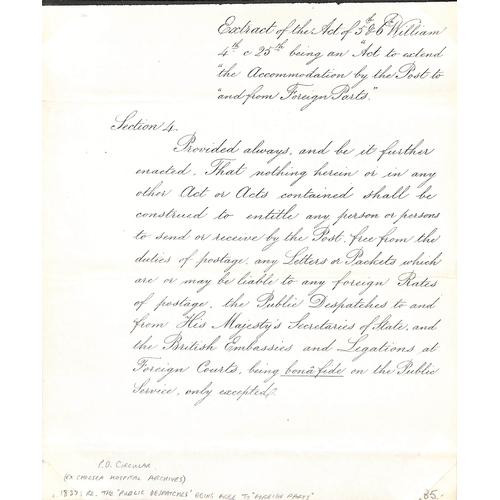 Extract of the Act of 5th & 6th William
4th c 25th being an "Act to extend
"the Accommodation by the Post to
"and from Foreign Parts."
Section 4.
Provided always, and be it further
enacted, That nothing herein or in any
other Act or Acts contained shall be
construed to entitle any person or persons
to send or receive by the Post, free from the
duties of postage, any Letters or Packets which
are or may be liable to any foreign Rates
of postage, the Public Despatches to and
from His Majesty's Secretaries of State, and
the British Embassies and Legations at
Foreign Courts, being bonâ fide on the Public
Service, only excepted.
P.O. CIRCULAR
(EX CHELSEA HOSPITAL ARCHIVES)
1837: RE. THE "PUBLIC DESPATCHES" BEING FREE TO "FOREIGN PARTS"
85.-